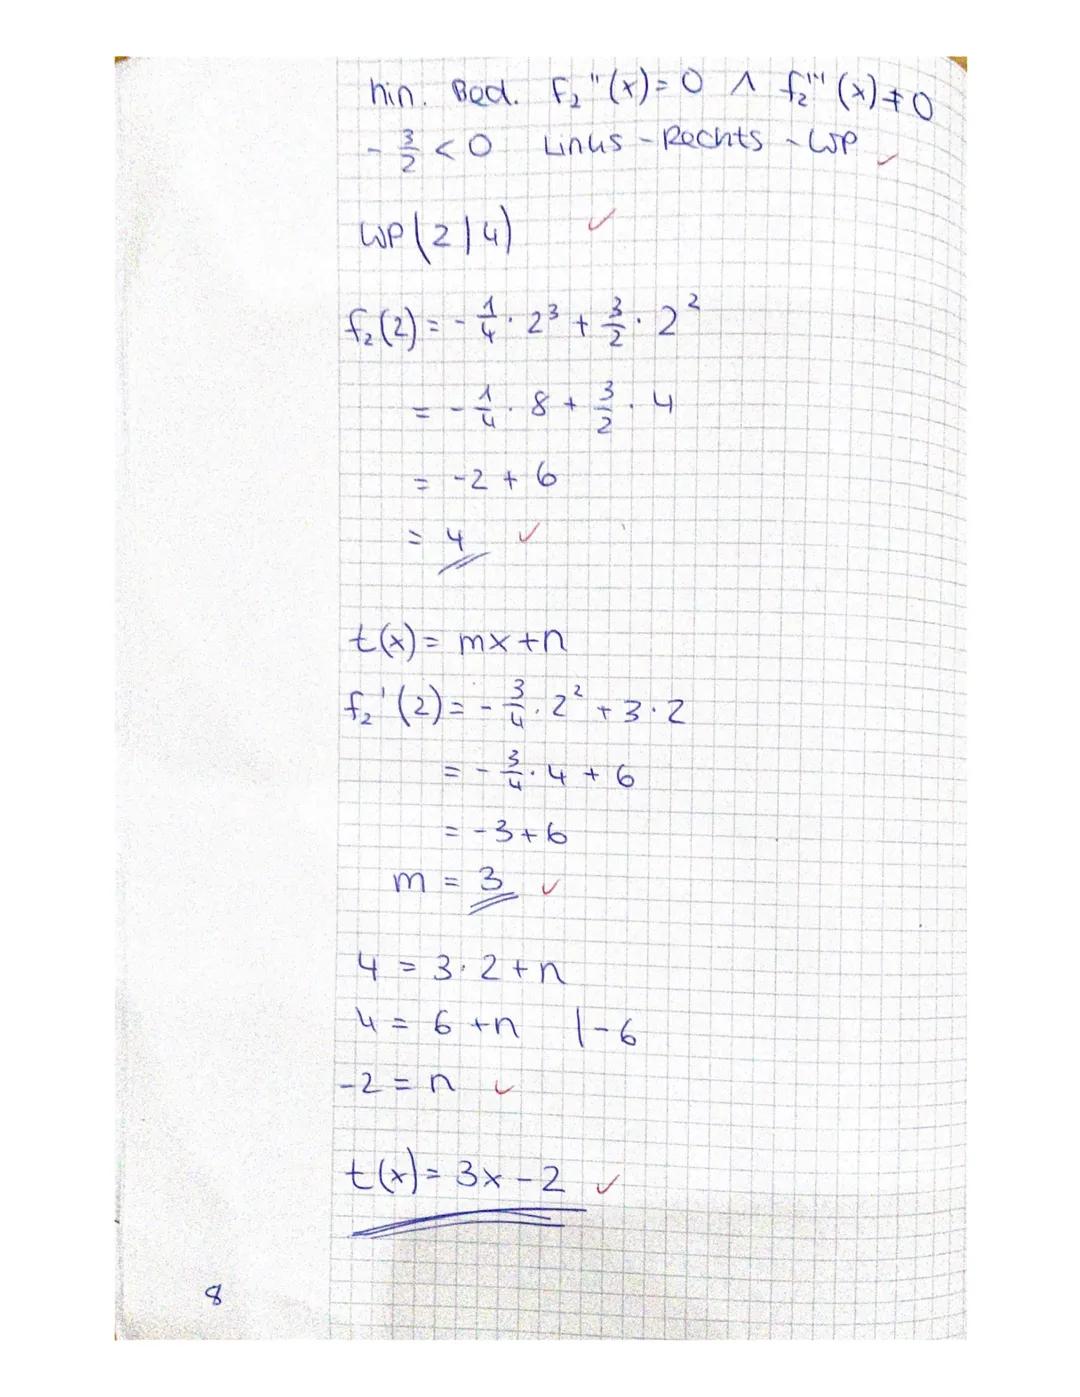 hin. Bed. f₂''(x) = 0 ∧ f₂'''(x) ≠ 0
- 3/2 < 0 Links-Rechts-WP ✓
WP(2|4) ✓
f₂(2) = - 1/4 · 2³ + 3/2 · 2²
= - 1/4 · 8 + 3/2 · 4
= -2 + 6
= 4 ✓
t(x) = mx + n
f₂'(2) = - 3/4 · 2² + 3 · 2
= - 3/4 · 4 + 6
= -3 + 6
m = 3 ✓
4 = 3 · 2 + n
4 = 6 + n |-6
-2 = n ✓
t(x) = 3x - 2 ✓
8